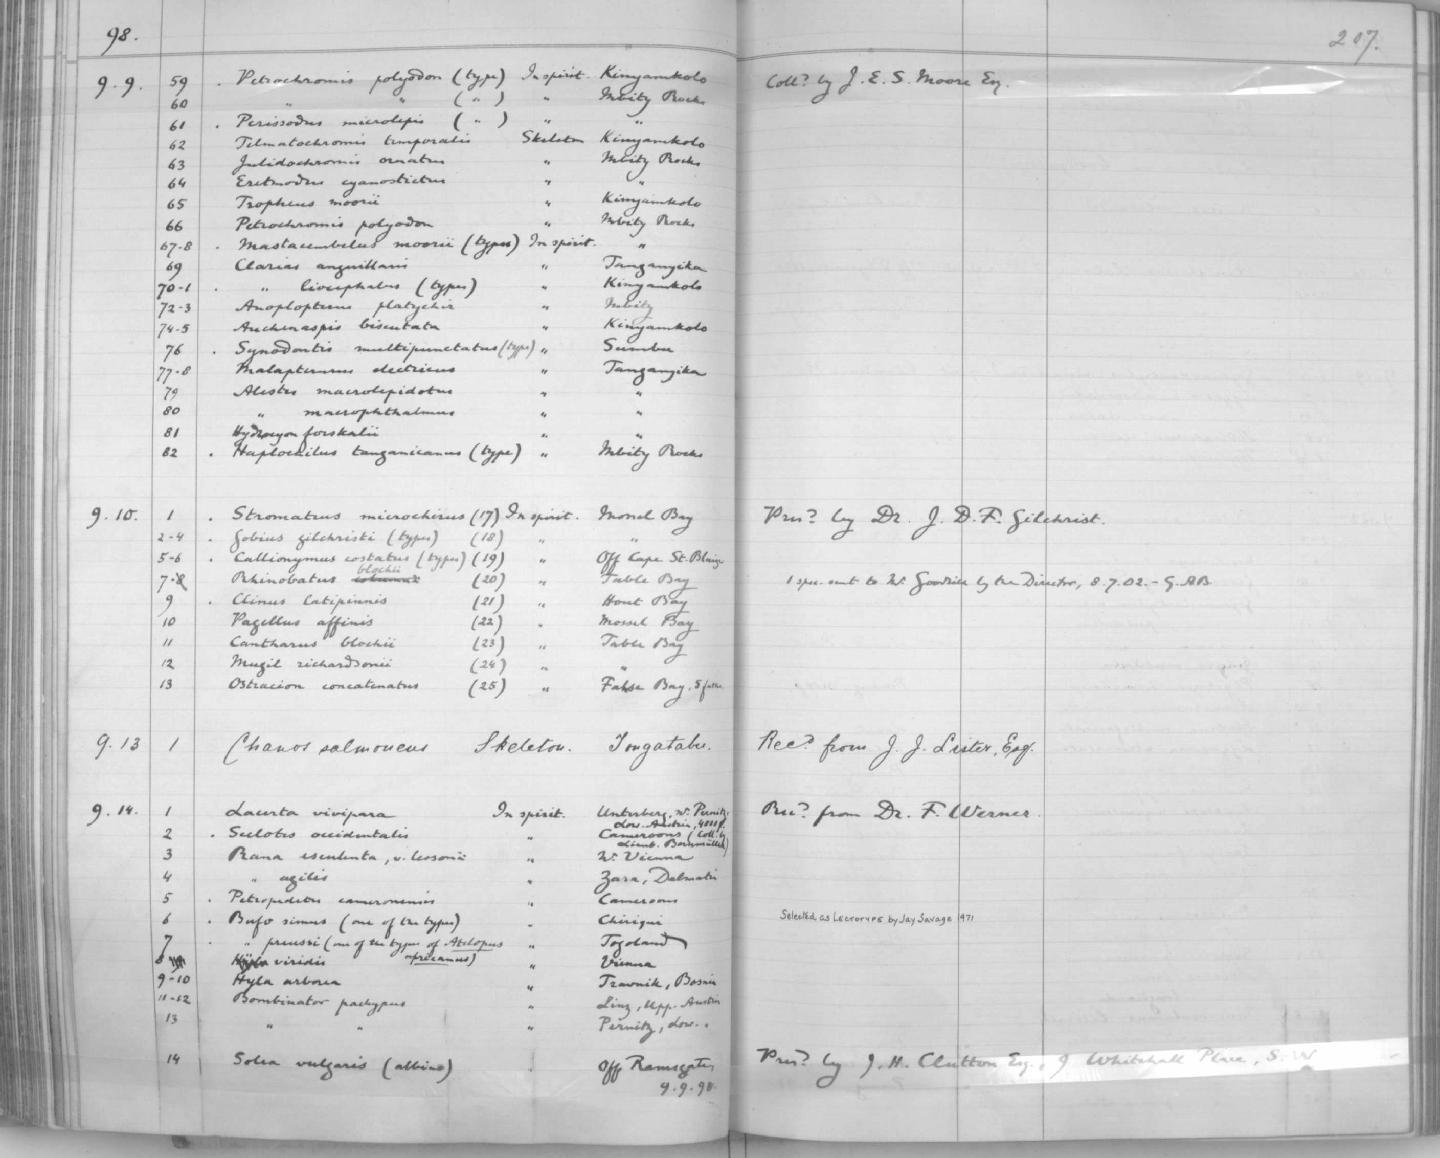 98.
207.
9.9. 59 . Petrochromis polyodon (type) In spirit. Kinyamkolo Coll? by J. E. S. Moore Esq.
60 " " ( " ) " Mbity Rocks
61 . Perissodus microlepis ( " ) " "
62 Telmatochromis temporalis Skeleton Kinyamkolo
63 Julidochromis ornatus " Mbity Rocks
64 Eretmodus cyanostictus " "
65 Tropheus moorii " Kinyamkolo
66 Petrochromis polyodon " Mbity Rocks
67-8 . Mastacembelus moorii (types) In spirit. "
69 Clarias anguillaris " Tanganyika
70-1 . " liocephalus (types) " Kinyamkolo
72-3 Anoplopterus platychir " Mbity
74-5 Auchenaspis biscutata " Kinyamkolo
76 . Synodontis multipunctatus (type) " Sumbu
77-8 Malapterurus electricus " Tanganyika
79 Alestes macrolepidotus " "
80 " macrophthalmus " "
81 Hydrocyon forskalii " "
82 . Haplochilus tanganicanus (type) " Mbity Rocks
9.10. 1 . Stromateus microchirus (17) In spirit. Mossel Bay Pres? by Dr. J. D. F. Gilchrist.
2-4 . Gobius gilchristi (types) (18) " "
5-6 . Callionymus costatus (types) (19) " Off Cape St. Blaize
blochii
7-8 Rhinobatus (20) " Table Bay 1 spec. sent to Mr. Goodrich by the Director, 8.7.02. - G.A.B
9 . Clinus latipinnis (21) " Hout Bay
10 Pagellus affinis (22) " Mossel Bay
11 Cantharus blochii (23) " Table Bay
12 Mugil richardsonii (24) " "
13 Ostracion concatenatus (25) " False Bay, 5
9.13 1 Chanos salmoneus Skeleton. Tongatabu. Rec? from J. J. Lister, Esq.
9.14. 1 Lacerta vivipara In spirit. Unterberg, W. Pernitz, Rec? from Dr. F. Werner.
Low. Austria,
2 . Scelotes occidentalis " Cameroons (Coll. by
Lieut. Bornmüller)
3 Rana esculenta, v. lessonae " W. Vienna
4 " agilis " Zara, Dalmatia
5 . Petropedetes cameronensis " Cameroons
6 . Bufo simus (one of the types) " Chiriqui Selected as Lectotype by Jay Savage 1971
7 . " preussi (one of the types of Atelopus " Togoland
africanus)
8 viridis " Vienna
9-10 Hyla arborea " Travnik, Bosnia
11-12 Bombinator pachypus " Linz, Upp. Austria
13 " " " Pernitz, Low. "
14 Solea vulgaris (albino) " Off Ramsgate, Pres? by J. H. Clutton Esq., 9 Whitehall Place, S.W
9.9.98